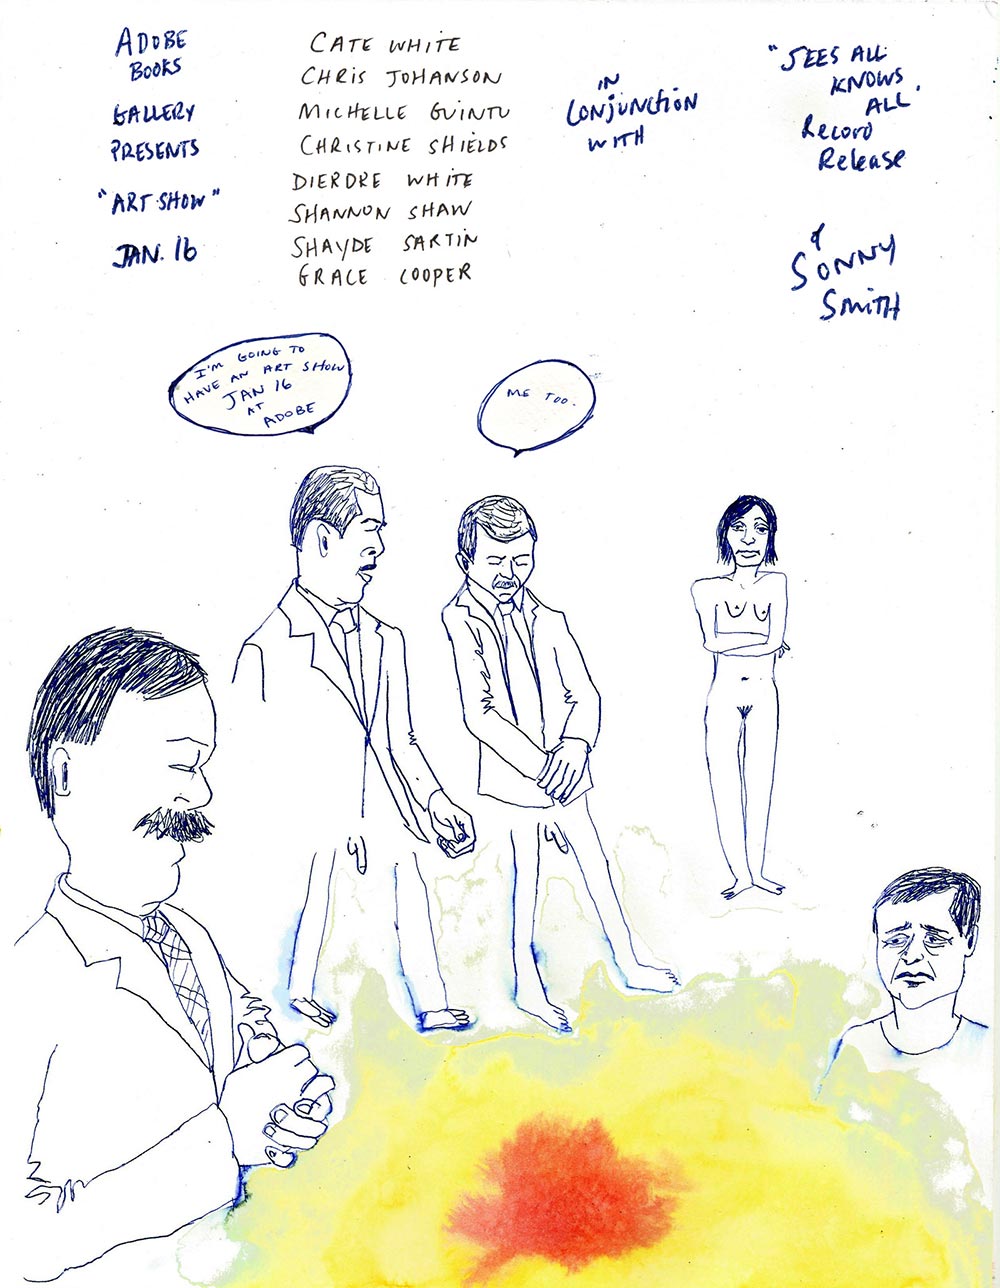 ADOBE
BOOKS
GALLERY
PRESENTS
"ART SHOW"
JAN. 16
CATE WHITE
CHRIS JOHANSON
MICHELLE GUINTU
CHRISTINE SHIELDS
DIERDRE WHITE
SHANNON SHAW
SHAYDE SARTIN
GRACE COOPER
IN
CONJUNCTION
WITH
"SEES ALL
KNOWS
ALL"
Record
Release
&
SONNY
SmiTH
I'M GOING TO
HAVE AN ART SHOW
JAN 16
AT
ADOBE
ME TOO.